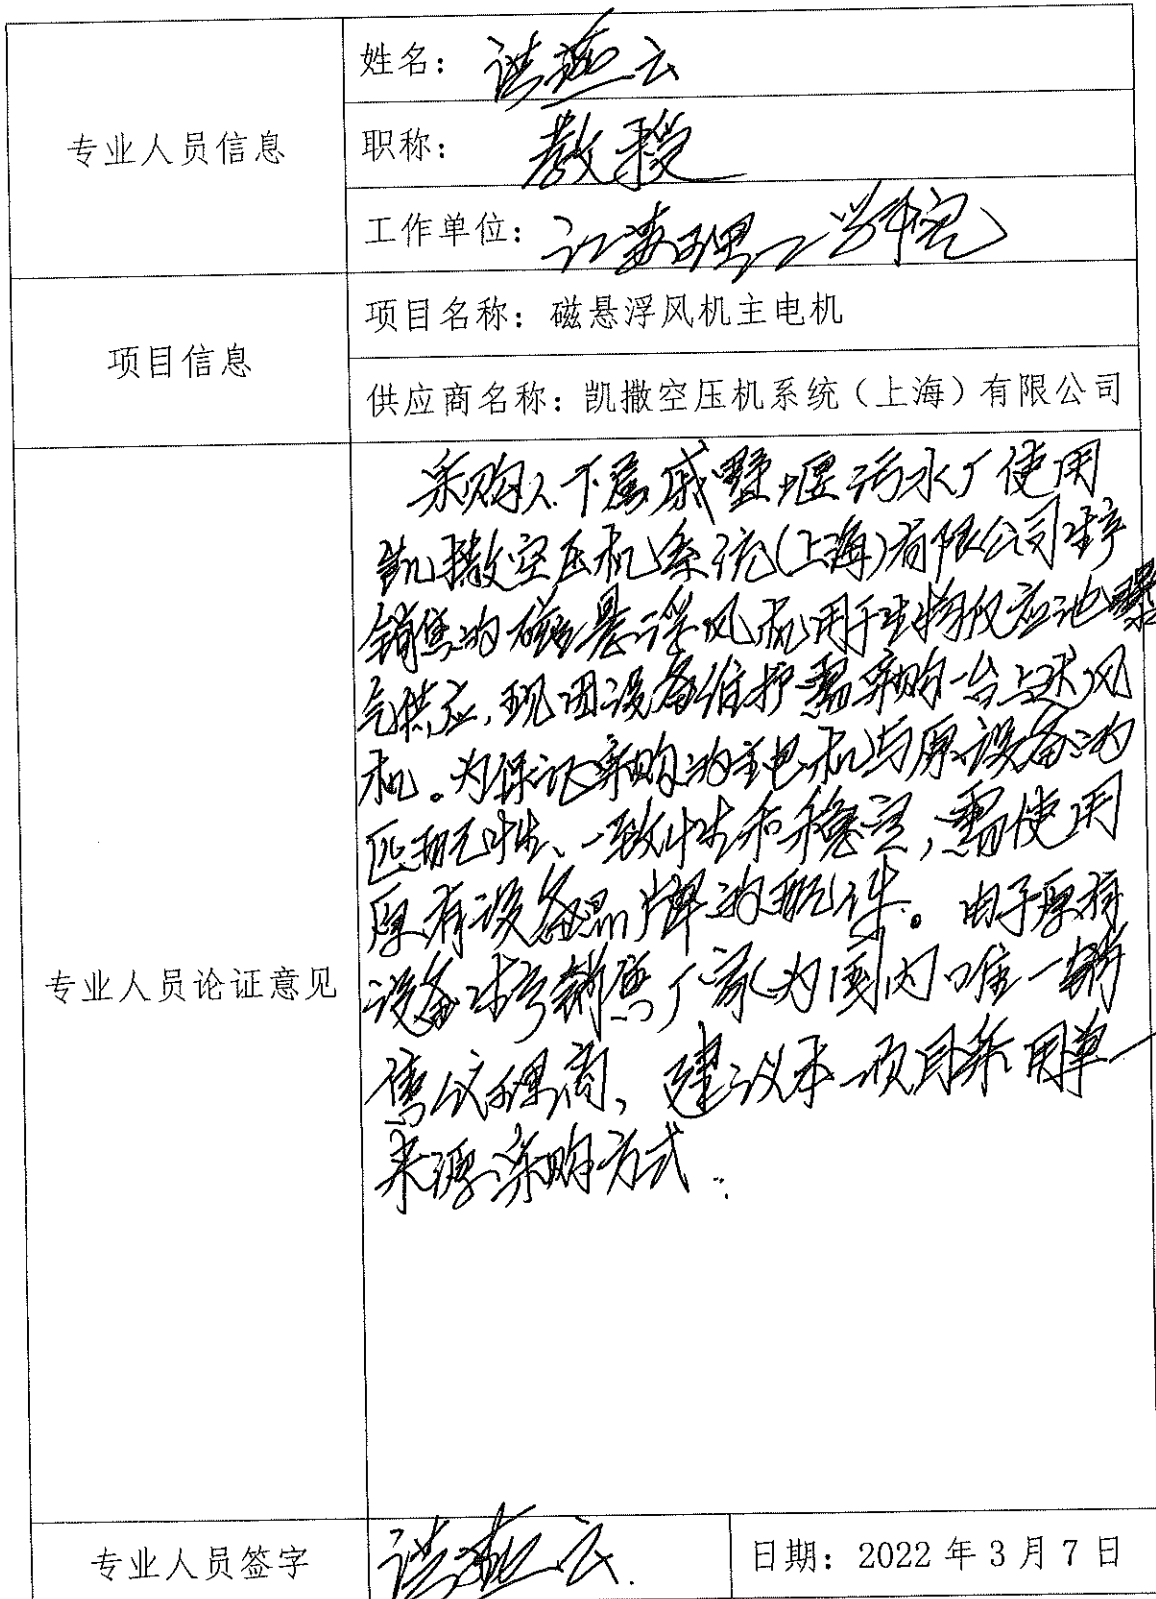 专业人员信息
姓名：
职称：教授
工作单位：江苏理工学院
项目信息
项目名称：磁悬浮风机主电机
供应商名称：凯撒空压机系统（上海）有限公司
专业人员论证意见
采购人下属戚墅堰污水厂使用
凯撒空压机系统(上海)有限公司生产
销售的磁悬浮风机用于生物反应池曝
气供应,现因设备维护需采购一台上述风
机。为保证采购的主电机与原设备的
匹配性、一致性和稳定,需使用
原有设备品牌的配件。由于原有
设备销售厂家为国内唯一销
售代理商,建议本项目采用单一
来源采购方式.
专业人员签字
日期：2022 年 3 月 7 日